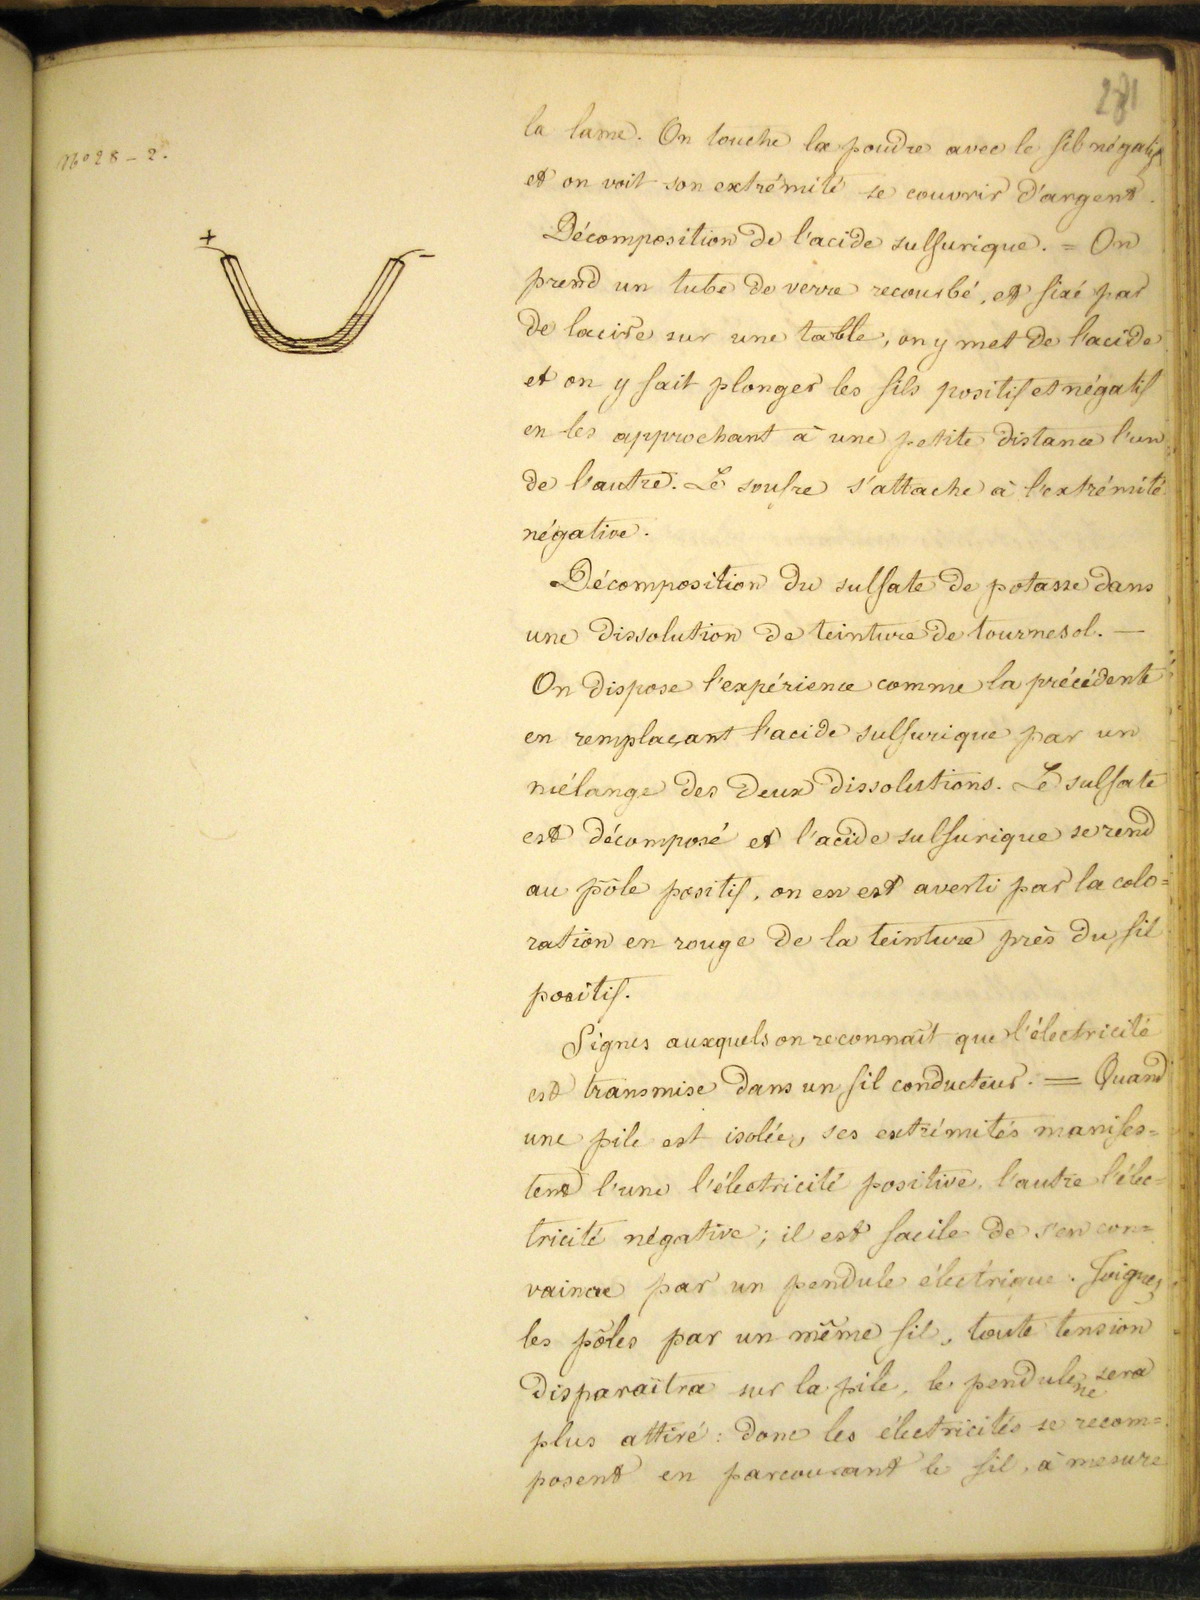 281
N° 28 - 2.
+ -
la lame. On touche la poudre avec le fil négatif
et on voit son extrémité se couvrir d'argent.
Décomposition de l'acide sulfurique. = On
prend un tube de verre recourbé, et fixé par
de la cire sur une table, on y met de l'acide
et on y fait plonger les fils positif et négatif
en les approchant à une petite distance l'un
de l'autre. Le soufre s'attache à l'extrémité
négative.
Décomposition du sulfate de potasse dans
une dissolution de teinture de tournesol. —
On dispose l'expérience comme la précédente
en remplaçant l'acide sulfurique par un
mélange des deux dissolutions. Le sulfate
est décomposé et l'acide sulfurique se rend
au pôle positif, on en est averti par la colo=
ration en rouge de la teinture près du fil
positif.
Signes auxquels on reconnaît que l'électricité
est transmise dans un fil conducteur. = Quand
une pile est isolée, ses extrémités manifes=
tent l'une l'électricité positive, l'autre l'élec=
tricité négative ; il est facile de s'en con=
vaincre par un pendule électrique. Joignez
les pôles par un même fil, toute tension
disparaîtra sur la pile, le pendule ne sera
plus attiré : donc les électricités se recom=
posent en parcourant le fil, à mesure